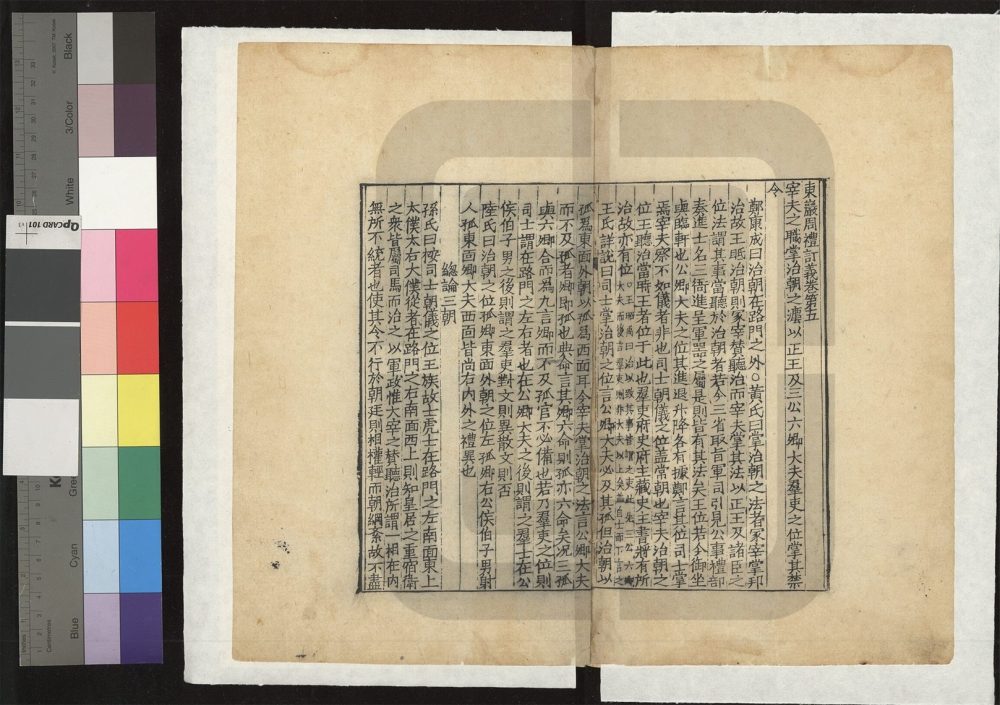 東巖周禮訂義卷第五
宰夫之職掌治朝之灋以正王及三公六卿大夫羣吏之位掌其禁
令
鄭康成曰治朝在路門之外○黃氏曰掌治朝之法者冢宰掌邦
治故王眂治朝則冢宰贊聽治而宰夫掌其法以正王及諸臣之
位法謂其事當聽於治朝者若今三省取旨軍司引見公事禮部
奏進士名三衙進呈軍器之屬是則皆有其法矣王位若今御坐
與臨軒也公卿大夫之位其進退升降各有據鄭言其位司士掌
焉宰夫察不如儀者非也司士朝儀之位蓋常朝也宰夫治朝之
位王聽治當時王者位于此也羣吏府史府主藏史主書將有所
治故亦有位
王氏詳說曰司士掌治朝之位言公卿大夫必及其孤但治朝以
孤爲東面外朝以孤爲西面耳今宰夫掌治朝之法言公卿大夫
而不及孤者卿即孤也典命言其卿六命則孤亦六命矣況三孤
與六卿合而爲九言卿而不及孤官不必備也若乃羣吏之位則
司士謂在路門之左右者也在公卿大夫之後則謂之羣士在公
侯伯子男之後則謂之羣吏對文則異散文則否
陸氏曰治朝之位孤卿東面外朝之位左孤卿右公侯伯子男射
人孤東面卿大夫西面皆尚右內外之禮異也
總論三朝
孫氏曰按司士朝儀之位王族故士虎士在路門之左南面東上
太僕太右大僕從者在路門之右南面西上則知皇居之重宿衛
之衆皆屬司馬而治之以軍政惟大宰之贊聽治所謂一相在內
無所不統者也使其令不行於朝廷則相權輕而朝綱紊故不盡
Black
3/Color
White
Cyan
Blue
QPCARD 101
Centimetres
Inches